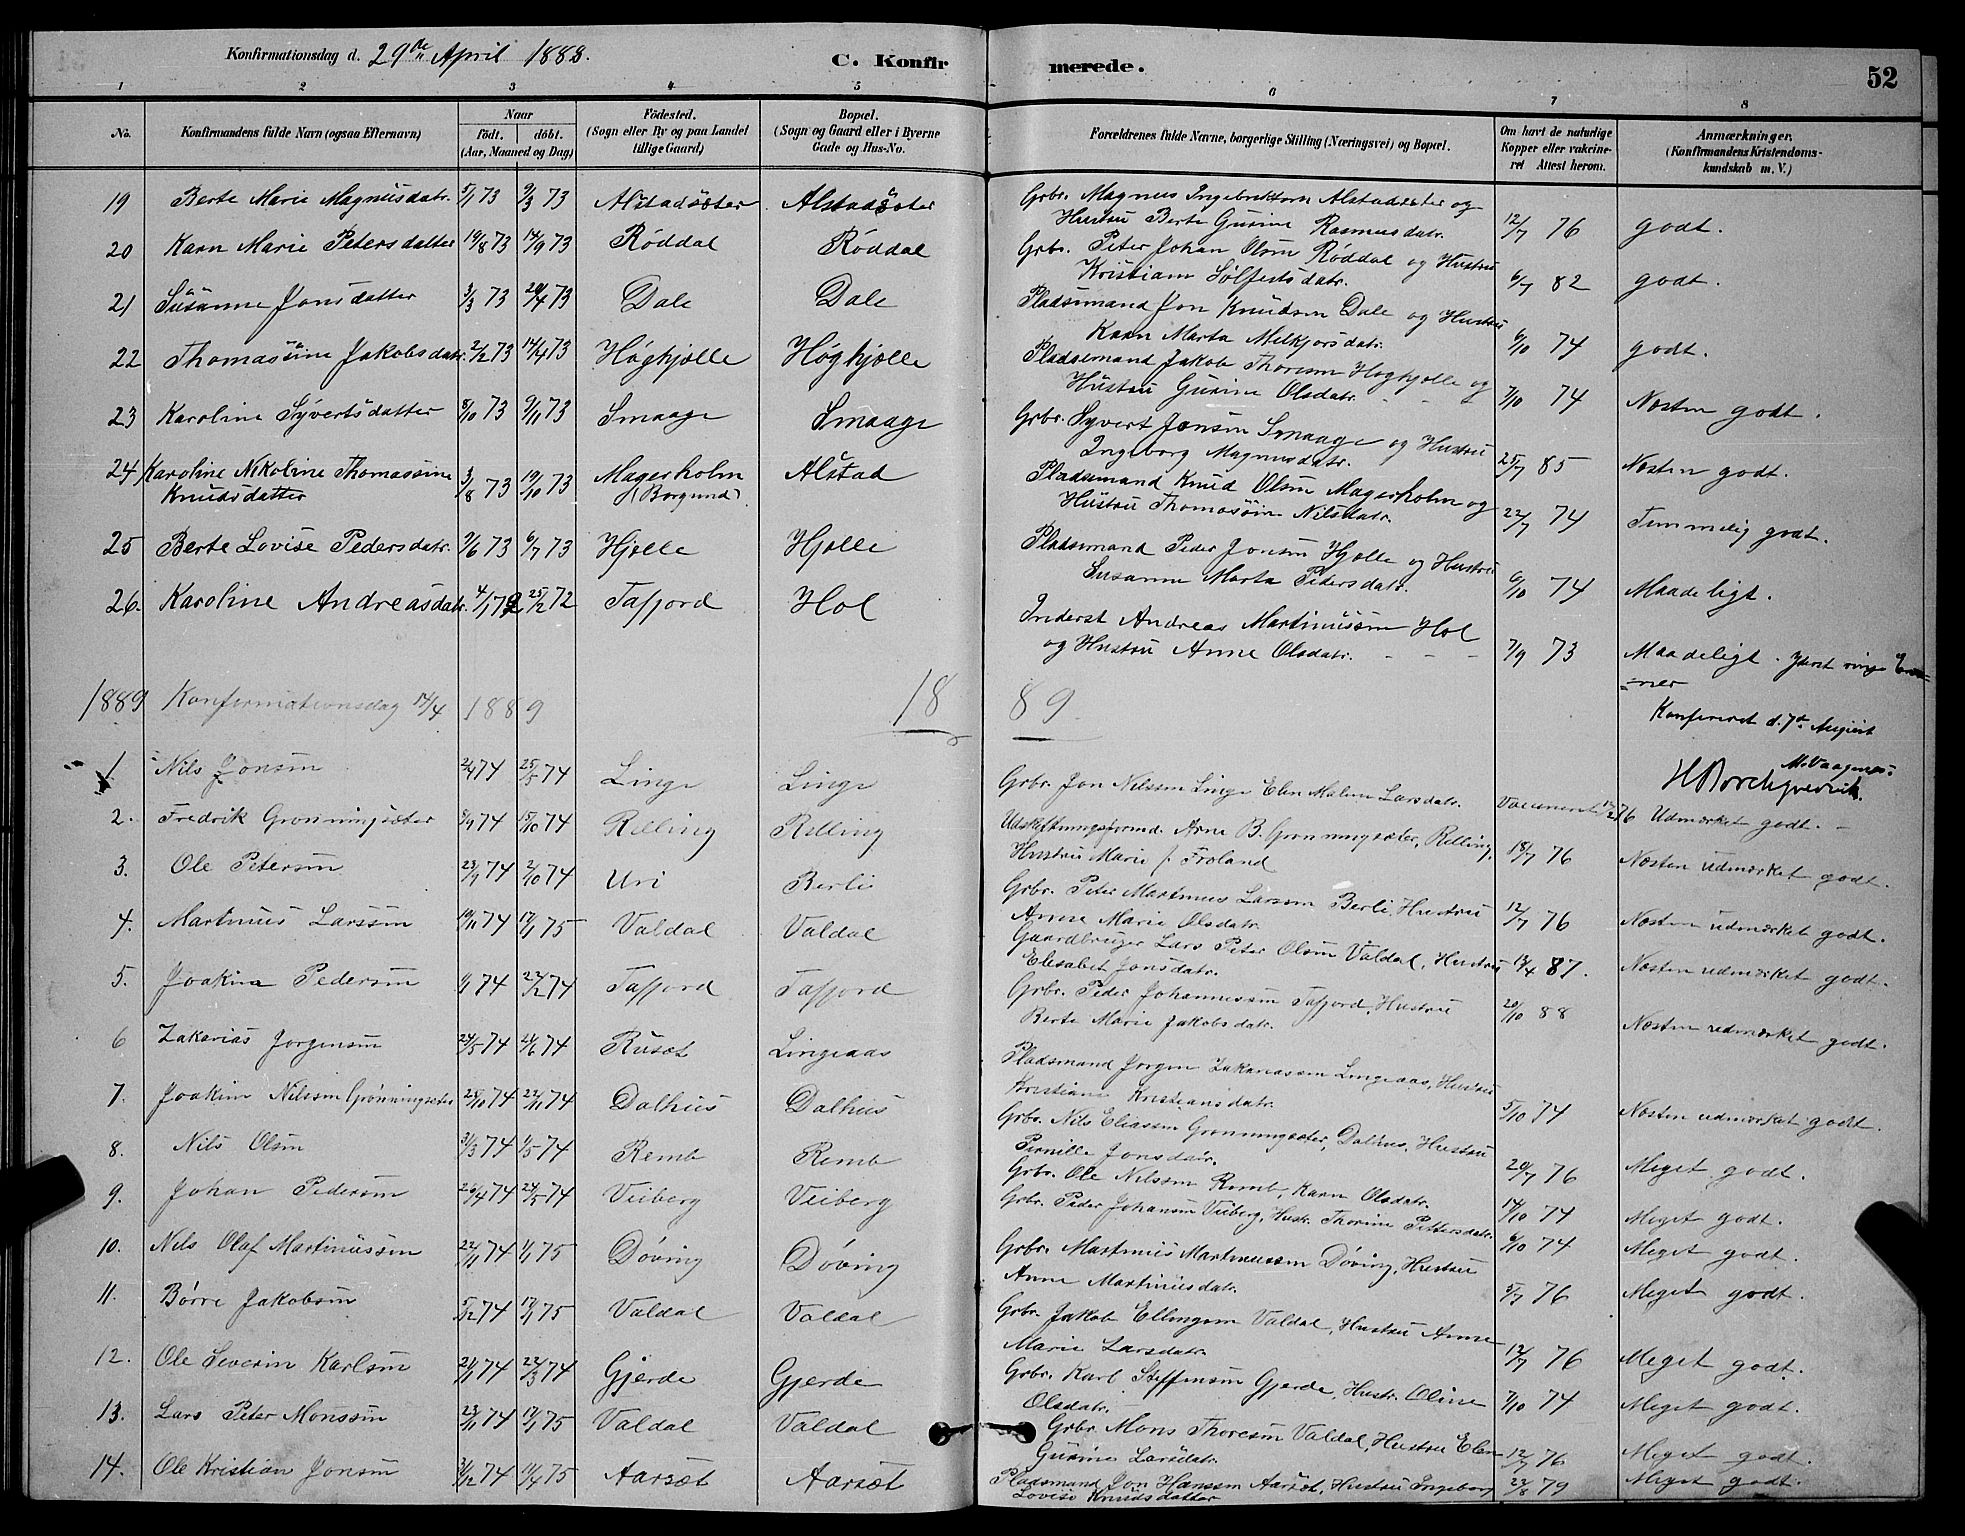 Konfirmationsdag d. 29de April 1888.
C. Konfirmerede.
52
1 2 3 4 5 6 7 8
No.
Konfirmandens fulde Navn (ogsaa Efternavn)
Naar
født. døbt.
(Aar, Maaned og Dag)
Fødested.
(Sogn eller By og paa Landet
tillige Gaard)
Bopæl.
(Sogn og Gaard eller i Byerne
Gade og Hus-No.
Forældrenes fulde Navne, borgerlige Stilling (Næringsvei) og Bopæl.
Om havt de naturlige
Kopper eller vakcine-
ret Attest herom.
Anmærkninger.
(Konfirmandens Kristendoms-
kundskab m. V.)
19 Berte Marie Magnusdatr. 5/1 73 9/3 73 Alstadsæter Alstadsæter Grbr. Magnus Ingebriktsen Alstadsæter og
Hustru Berte Gurine Rasmusdatr. 12/7 76 godt.
20 Karn Marie Petersdatter 19/8 73 14/9 73 Røddal Røddal Grbr. Peter Johan Olsen Røddal og Hustru
Kristiane Sølfestsdatr. 6/7 82 godt.
21 Susanne Jonsdatter 3/3 73 20/4 73 Dale Dale Pladsmand Jon Knudsen Dale og Hustru
Karn Marta Melkjorsdatr. 6/10 74 godt.
22 Thomassine Jakobsdatr. 2/2 73 14/4 73 Høghjølle Høghjølle Pladsemand Jakob Thoresen Høghjølle og
Hustru Gurine Olsdatr. 7/10 74 Næsten godt.
23 Karoline Syvertsdatter 8/10 73 9/11 73 Smaage Smaage Grbr. Syvert Jonsen Smaage og Hustru
Ingeborg Magnusdatr. 25/7 85 Næsten godt.
24 Karoline Nikoline Thomassine
Knudsdatter 3/8 73 19/10 73 Magerholm
(Borgund) Alstad Pladsemand Knud Olsen Magerholm og
Hustru Thomasine Nilsdatr. 22/7 74 Temmelig godt.
25 Berte Lovise Pedersdatr. 7/6 73 6/7 73 Hjelle Hjelle Pladsemand Peder Jonsen Hjelle og Hustru
Susanne Marta Pedersdatr. 6/10 74 Maadeligt.
26. Karoline Andreasdatr. 4/1 72 25/2 72 Tafjord Hol Inderst Andreas Martinussen Hol
og Hustru Anne Olsdatr. 7/9 73 Maadeligt. Yderst ringe
Konfereret d. 7de August
1889 Konfirmationsdag 14/4 1889 18 89
1 Nils Jonsen 74 25/5 74 Linge Linge Grbr. Jon Nilssen Linge Elen Malene Larsdatr. 76 Udmærket godt.
2. Fredrik Grønningsæter 8/9 74 15/10 74 Relling Relling Udskiftningsformd. Arne B. Grønningsæter, Relling,
Hustru Marie f. Froland 18/7 76 Næsten udmærket godt.
3. Ole Petersen 74 2/10 74 Uri Berli Grbr. Peter Martinus Larsen Berli, Hustru
Anne Marie Olsdatr. 12/7 76 Næsten udmærket godt.
4. Martinus Larssen 19/11 74 17/1 75 Valdal Valdal Gaardbruger Lars Peter Olsen Valdal, Hustru
Elisabet Jonsdatr. 87. Næsten udmærket godt.
5. Joakim Pedersen 74 22/2 74 Tafjord Tafjord Grbr. Peder Johannessen Tafjord, Hustru
Berte Marie Jakobsdatr. 20/10 88 Næsten udmærket godt.
6 Zakarias Jørgensen 24/5 74 21/6 74 Ruset Lingeaas Pladsmand Jørgen Zakariassen Lingeaas, Hustru
Kristiane Kristiansdatr. 5/10 74 Næsten udmærket godt.
7. Joakim Nilssen Grønningsæter 25/10 74 22/11 74 Dalhus Dalhus Grbr. Nils Eliassen Grønningsæter, Dalhus, Hustru
Pernille Jonsdatr. 20/7 76 Meget godt.
8. Nils Olsen 31/3 74 1/5 74 Remb Remb Grbr. Ole Nilssen Remb, Karn Olsdatr. 14/10 74 Meget godt.
9. Johan Pedersen 26/4 74 24/5 74 Veiberg Veiberg Grbr. Peder Johansen Veiberg, Hustr. Thorine Pettersdatr. 6/10 74 Meget godt.
10. Nils Olaf Martinussen 22/11 74 1/1 75 Døving Døving Grbr. Martinus Martinussen Døving, Hustru
Anne Martinusdatr. 5/7 76 Meget godt.
11. Børre Jakobsen 5/12 74 17/1 75 Valdal Valdal Grbr. Jakob Ellingsen Valdal, Hustru Anne
Marie Larsdatr. 12/7 76 Meget godt.
12. Ole Severin Karlsen 21/1 74 22/3 74 Gjerde Gjerde Grbr. Karl Steffensen Gjerde, Hustr. Oline
Olsdatr. 7/10 74 Meget godt.
13. Lars Peter Monssen 23/11 74 17/1 75 Valdal Valdal Grbr. Mons Thoresen Valdal, Hustru Elen
Gurine Larsdatr. 12/7 76 Meget godt.
14. Ole Kristian Jonsen 31/12 74 11/4 75 Aarset Aarset Pladsmand Jon Hanssen Aarset, Hustru Ingeborg
Lovise Knudsdatter 22/8 79 Meget godt.